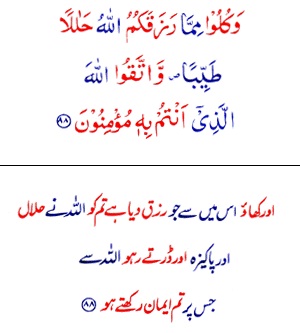 وَكُلُوۡا مِمَّا رَزَقَكُمُ اللّٰهُ حَلٰلًا
طَيِّبًا ۖ وَّ اتَّقُوا اللّٰهَ
الَّذِىۡۤ اَنۡـتُمۡ بِهٖ مُؤۡمِنُوۡنَ ﴿۸۸﴾
اور کھاؤ اس میں سے جو رزق دیا ہے تم کو اللہ نے حلال
اور پاکیزہ اور ڈرتے رہو اللہ سے
جس پر تم ایمان رکھتے ہو ﴿۸۸﴾